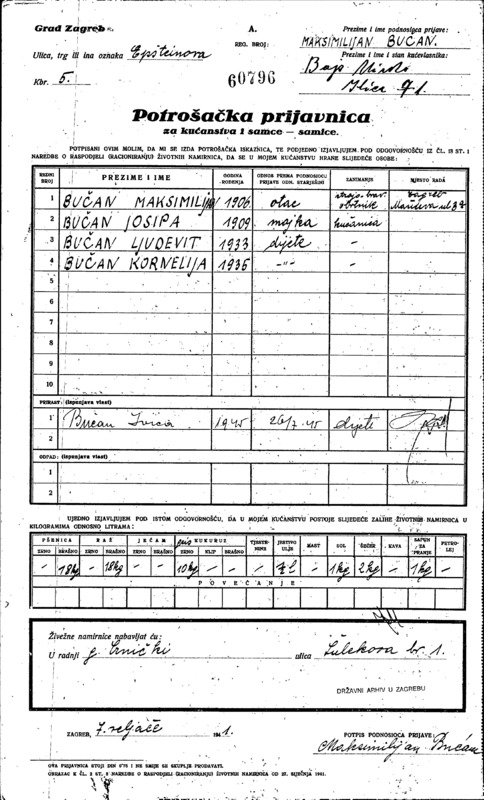 Grad Zagreb
Ulica, trg ili ina oznaka Epsteinova
Kbr. 5.
A.
REG. BROJ:
60796
Prezime i ime podnosioca prijave:
MAKSIMILIJAN BUČAN.
Prezime i ime i stan kućevlasnika:
Ilica 91
Potrošačka prijavnica
za kućanstva i samce — samice.
POTPISANI OVIM MOLIM, DA MI SE IZDA POTROŠAČKA ISKAZNICA, TE PODJEDNO IZJAVLJUJEM POD ODGOVORNOŠĆU IZ ČL. 18 ST. 1
NAREDBE O RASPODJELI (RACIONIRANJU) ŽIVOTNIH NAMIRNICA, DA SE U MOJEM KUĆANSTVU HRANE SLIJEDEĆE OSOBE:
REDNI BROJ PREZIME I IME GODINA ROĐENJA ODNOS PREMA PODNOSIOCU PRIJAVE ODN. STARJEŠINI ZANIMANJE MJESTO RADA
1 BUČAN MAKSIMILIJAN 1906 otac
2 BUČAN JOSIPA 1909 majka kućanica
3 BUČAN LJUDEVIT 1933 dijete –
4 BUČAN KORNELIJA 1935 -"- –
5
6
7
8
9
10
PRIRAST: (ispunjava vlast)
1 Bučan Ivica 1945 26/7. 45 dijete
2
OTPAD: (ispunjava vlast)
1
2
UJEDNO IZJAVLJUJEM POD ISTOM ODGOVORNOŠĆU, DA U MOJEM KUĆANSTVU POSTOJE SLIJEDEĆE ZALIHE ŽIVOTNIH NAMIRNICA U
KILOGRAMIMA ODNOSNO LITRAMA:
PŠENICA RAŽ JEČAM KUKURUZ TJESTENINE JESTIVO ULJE MAST SOL ŠEĆER KAVA SAPUN ZA PRANJE PETROLEJ
ZRNO BRAŠNO ZRNO BRAŠNO ZRNO BRAŠNO ZRNO KLIP BRAŠNO
– 18kg – 18kg – – 10kg – – – – 1kg 2kg – 1kg –
POVEĆANJE
Živežne namirnice nabavljat ću:
U radnji g. Crnički ulica Šulekova br. 1.
DRŽAVNI ARHIV U ZAGREBU
ZAGREB, 7. veljače 1941.
POTPIS PODNOSIOCA PRIJAVE:
Maksimilijan Bučan
OVA PRIJAVNICA STOJI DIN 0·75 I NE SMIJE SE SKUPLJE PRODAVATI.
OBRAZAC K ČL. 2 ST. 2 NAREDBE O RASPODJELI (RACIONIRANJU) ŽIVOTNIH NAMIRNICA OD 27. SIJEČNJA 1941.